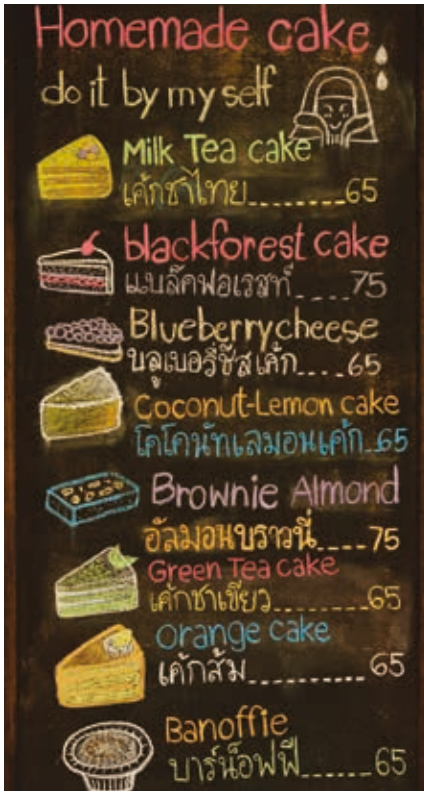 Homemade cake
do it by my self
Milk Tea cake
เค้กชาไทย........65
blackforest cake
แบล๊คฟอเรสท์....75
Blueberrycheese
บลูเบอรี่ชีสเค้ก....65
Coconut-Lemon cake
โคโคนัทเลมอนเค้ก..65
Brownie Almond
อัลมอนบราวนี่....75
Green Tea cake
เค้กชาเขียว........65
orange cake
เค้กส้ม..........65
Banoffie
บาร์น็อฟฟี่......65